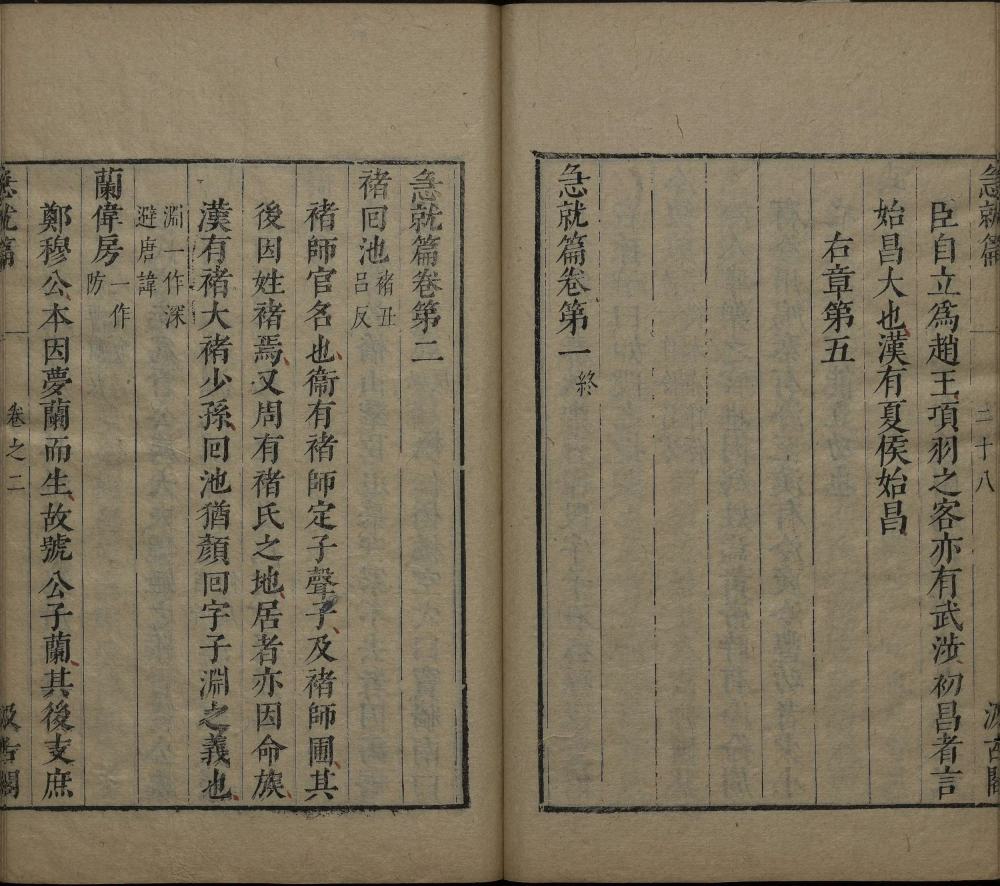 急就篇
二十八
汲古閣
臣自立爲趙王項羽之客亦有武涉初昌者言
始昌大也漢有夏侯始昌
右章第五
急就篇卷第一終
急就篇卷第二
褚回池褚丑
呂反
褚師官名也衞有褚師定子聲子及褚師圃其
後因姓褚焉又周有褚氏之地居者亦因命族
漢有褚大褚少孫回池猶顏回字子淵之義也
淵一作深
避唐諱
蘭偉房一作
防
鄭穆公本因夢蘭而生故號公子蘭其後支庶
急就篇
卷之二
汲古閣